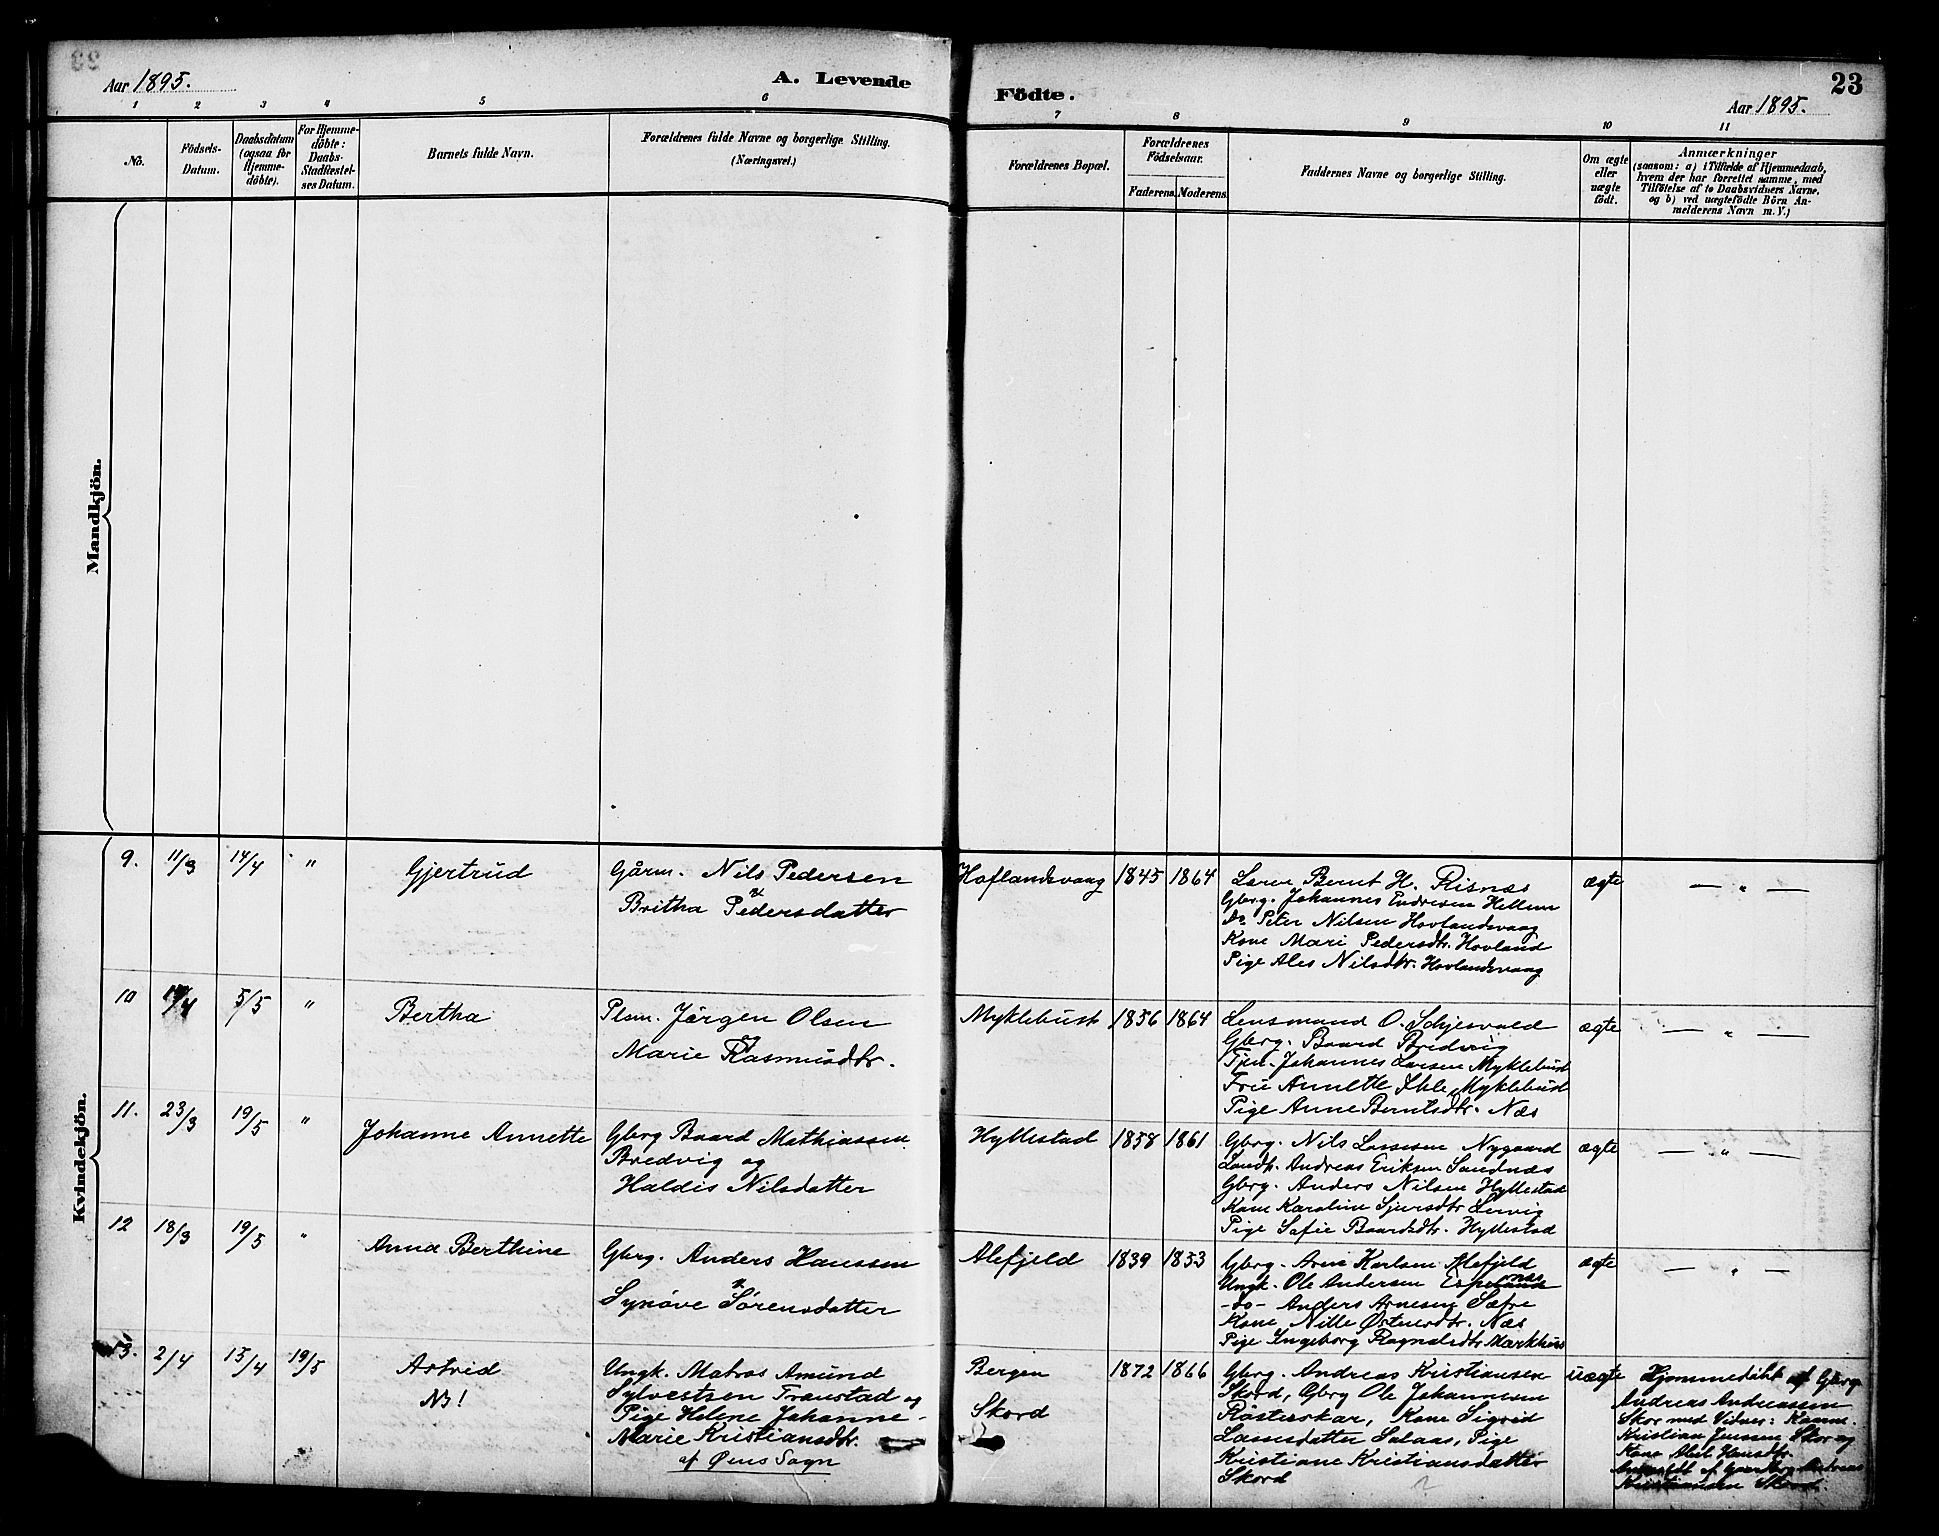 Aar 1895.
A. Levende
Födte.
23
Aar 1895.
1 2 3 4 5 6 7 8 9 10 11
No.
Födsels-
Datum.
Daabsdatum
(ogsaa for
Hjemme-
döbte).
For Hjemme-
döbte:
Daabs-
Stadfæstel-
ses Datum.
Barnets fulde Navn.
Forældrenes fulde Navne og borgerlige Stilling.
(Næringsvei.)
Forældrenes Bopæl.
Forældrenes
Födselsaar.
Faderens. Moderens.
Faddernes Navne og borgerlige Stilling.
Om ægte
eller
uægte
födt.
Anmærkninger
(saasom: a) i Tilfælde af Hjemmedaab,
hvem der har forrettet samme, med
Tilföielse af to Daabsvidners Navne,
og b) ved uægtefödte Börn An-
melderens Navn m. V.)
Mandkjön.
Kvindekjön.
9. 11/3 14/4 "
Gjertrud
Gårm. Nils Pedersen
&
Britha Pedersdatter
Hoflandsvaag 1845 1864
Bernt H. Risnæs
Gbrg. Johannes Endresen Hellem
do. Peter Nilsen Hovlandsvaag
Kone Mari Pedersdtr. Hovland
Pige Ales Nilsdtr. Hovlandsvaag
ægte
— " —
10 /4 5/5 "
Bertha
Plsm. Jörgen Olsen
&
Marie Rasmusdtr.
Myklebust 1856 1864
Lensmand O. Schjesvold
Gbrg. Baard Bredvig
Tjen. Johannes Larsen Myklebust
Fru Annette Myklebust
Pige Anne Berntsdtr. Næs
ægte
— " —
11. 23/3 19/5 "
Johanne Annette
Gbrg Baard Mathiassen
Bredvig og
Haldis Nilsdatter
Hyllestad 1858 1861
Gbrg. Nils Lassesen Nygaard
Landh. Andreas Eriksen Sandnæs
Gbrg. Anders Nilsen Hyllestad
Kone Karoline Sjursdtr. Lervig
Pige Safie Baardsdtr. Hyllestad
ægte
— " —
12 18/3 19/5 "
Anna Berthine
Gbrg. Anders Hanssen
&
Synöve Sörensdatter
Alefjeld 1839 1853
Gbrg. Arne Karlsen Alefjeld
Ungk. Ole Andersen
-do- Anders Arnesen Sæfre
Kone Nille Østnesdtr. Næs
Pige Ingeborg Ragnaldsdtr. Markhus
ægte
— " —
13. 2/4 15/4 19/5
Astrid
NB!
Ungk. Matros Amund
Sylvestsen Trænstad og
Pige Helene Johanne-
Marie Kristiansdtr.
af Øens Sogn
Bergen
Skord
1872 1866
Gbrg. Andreas Kristiansen
Skord, Gbrg Ole Johannesen
Røsterskar, Kone Sigrid
Lassesdatter Salaas, Pige
Kristiane Kristiansdatter
Skord
uægte
Hjemmedöbt af Gbrg.
Andreas Andreassen
Skor med Vidner:
Kristian Jenssen Skor og
Kone Abel Hansdtr.
Anmeldt af Gaardbrg. Andreas
Kristiansen Skord.